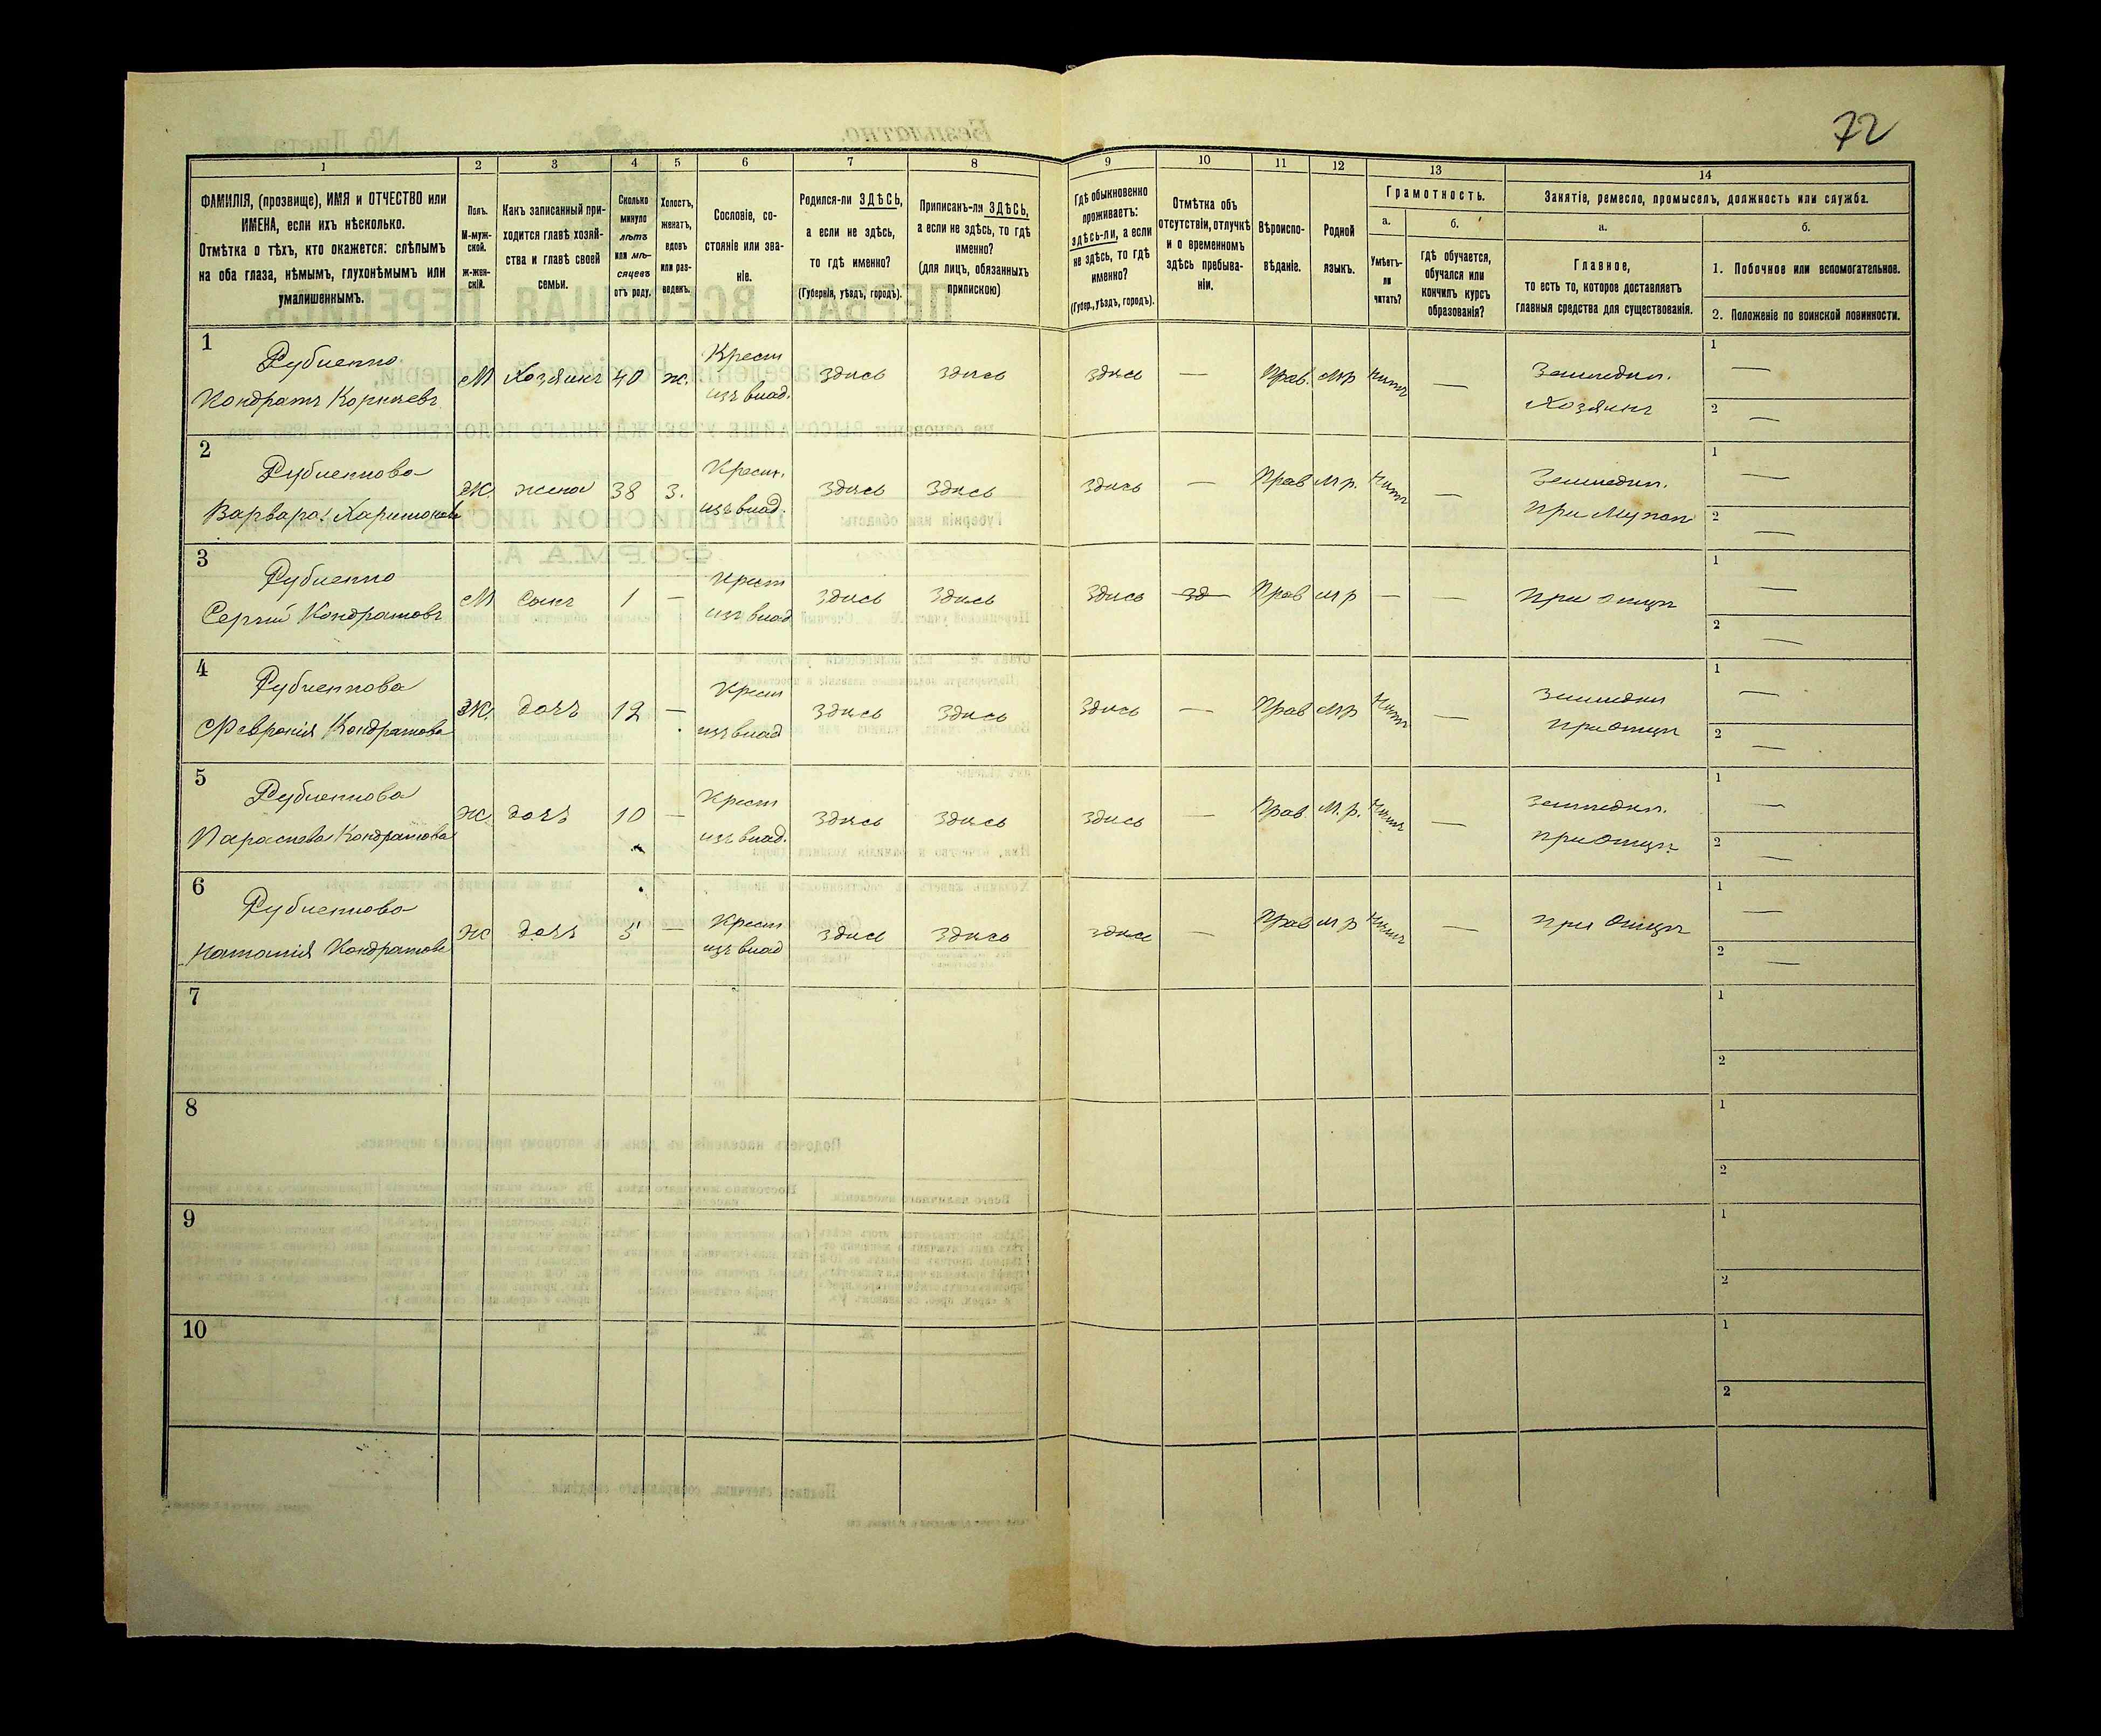 72
1 2 3 4 5 6 7 8 9 10 11 12 13 14
ФАМИЛІЯ, (прозвище), ИМЯ и ОТЧЕСТВО или
ИМЕНА, если ихъ нѣсколько.
Отмѣтка о тѣхъ, кто окажется: слѣпымъ
на оба глаза, нѣмымъ, глухонѣмымъ или
умалишеннымъ.
Полъ.
М-муж-
ской.
ж-жен-
скій.
Какъ записанный при-
ходится главѣ хозяй-
ства и главѣ своей
семьи.
Сколько
минуло
лѣтъ
или мѣ-
сяцевъ
отъ роду.
Холостъ,
женатъ,
вдовъ
или раз-
веденъ.
Сословіе, со-
стояніе или зва-
ніе.
Родился-ли ЗДѢСЬ,
а если не здѣсь,
то гдѣ именно?
(Губернія, уѣздъ, городъ).
Приписанъ-ли ЗДѢСЬ,
а если не здѣсь, то гдѣ
именно?
(для лицъ, обязанныхъ
припискою)
Гдѣ обыкновенно
проживаетъ:
здѣсь-ли, а если
не здѣсь, то гдѣ
именно?
(Губер., уѣздъ, городъ).
Отмѣтка объ
отсутствіи, отлучкѣ
и о временномъ
здѣсь пребыва-
ніи.
Вѣроиспо-
вѣданіе.
Родной
языкъ.
Грамотность.
а.
Умѣетъ-
ли
читать?
б.
гдѣ обучается,
обучался или
кончилъ курсъ
образованія?
Занятіе, ремесло, промыселъ, должность или служба.
а.
Главное,
то есть то, которое доставляетъ
главныя средства для существованія.
б.
1. Побочное или вспомогательное.
2. Положеніе по воинской повинности.
1
Рубленко
Кондратъ Корнѣевъ
М Хозяинъ 40 ж.
Крест
изъ влад.
здѣсь здѣсь здѣсь — Прав. Мр нѣтъ —
Земледѣл.
Хозяинъ
1 —
2 —
2
Рубленкова
Варвара Харитонова
Ж. жена 38 З.
Крест.
изъ влад.
Здѣсь Здѣсь Здѣсь — Прав Мр. Нѣтъ —
Земледѣл.
при Мужѣ
1 —
2 —
3
Рубленко
Сергѣй Кондратовъ
М Сынъ 1 —
Крест
изъ влад
Здѣсь Здѣсь Здѣсь зд Прав мр — —
При отцѣ
1 —
2 —
4
Рубленкова
Февронія Кондратова
Ж. дочь 12 —
Крест
изъ влад
Здѣсь Здѣсь Здѣсь — Прав Мр Нѣтъ —
Земледѣл
при отцѣ
1 —
2 —
5
Рубленкова
Параскева Кондратова
Ж. дочь 10 —
Крест
изъ влад.
Здѣсь Здѣсь Здѣсь — Прав. М. р. Нѣтъ —
Земледѣл.
при отцѣ
1 —
2 —
6
Рубленкова
Наталія Кондратова
Ж дочь 5 —
Крест
изъ влад
Здѣсь Здѣсь здѣсь — Прав мр Нѣтъ —
при Отцѣ
1 —
2 —
7
1
2
8
1
2
9
1
2
10
1
2